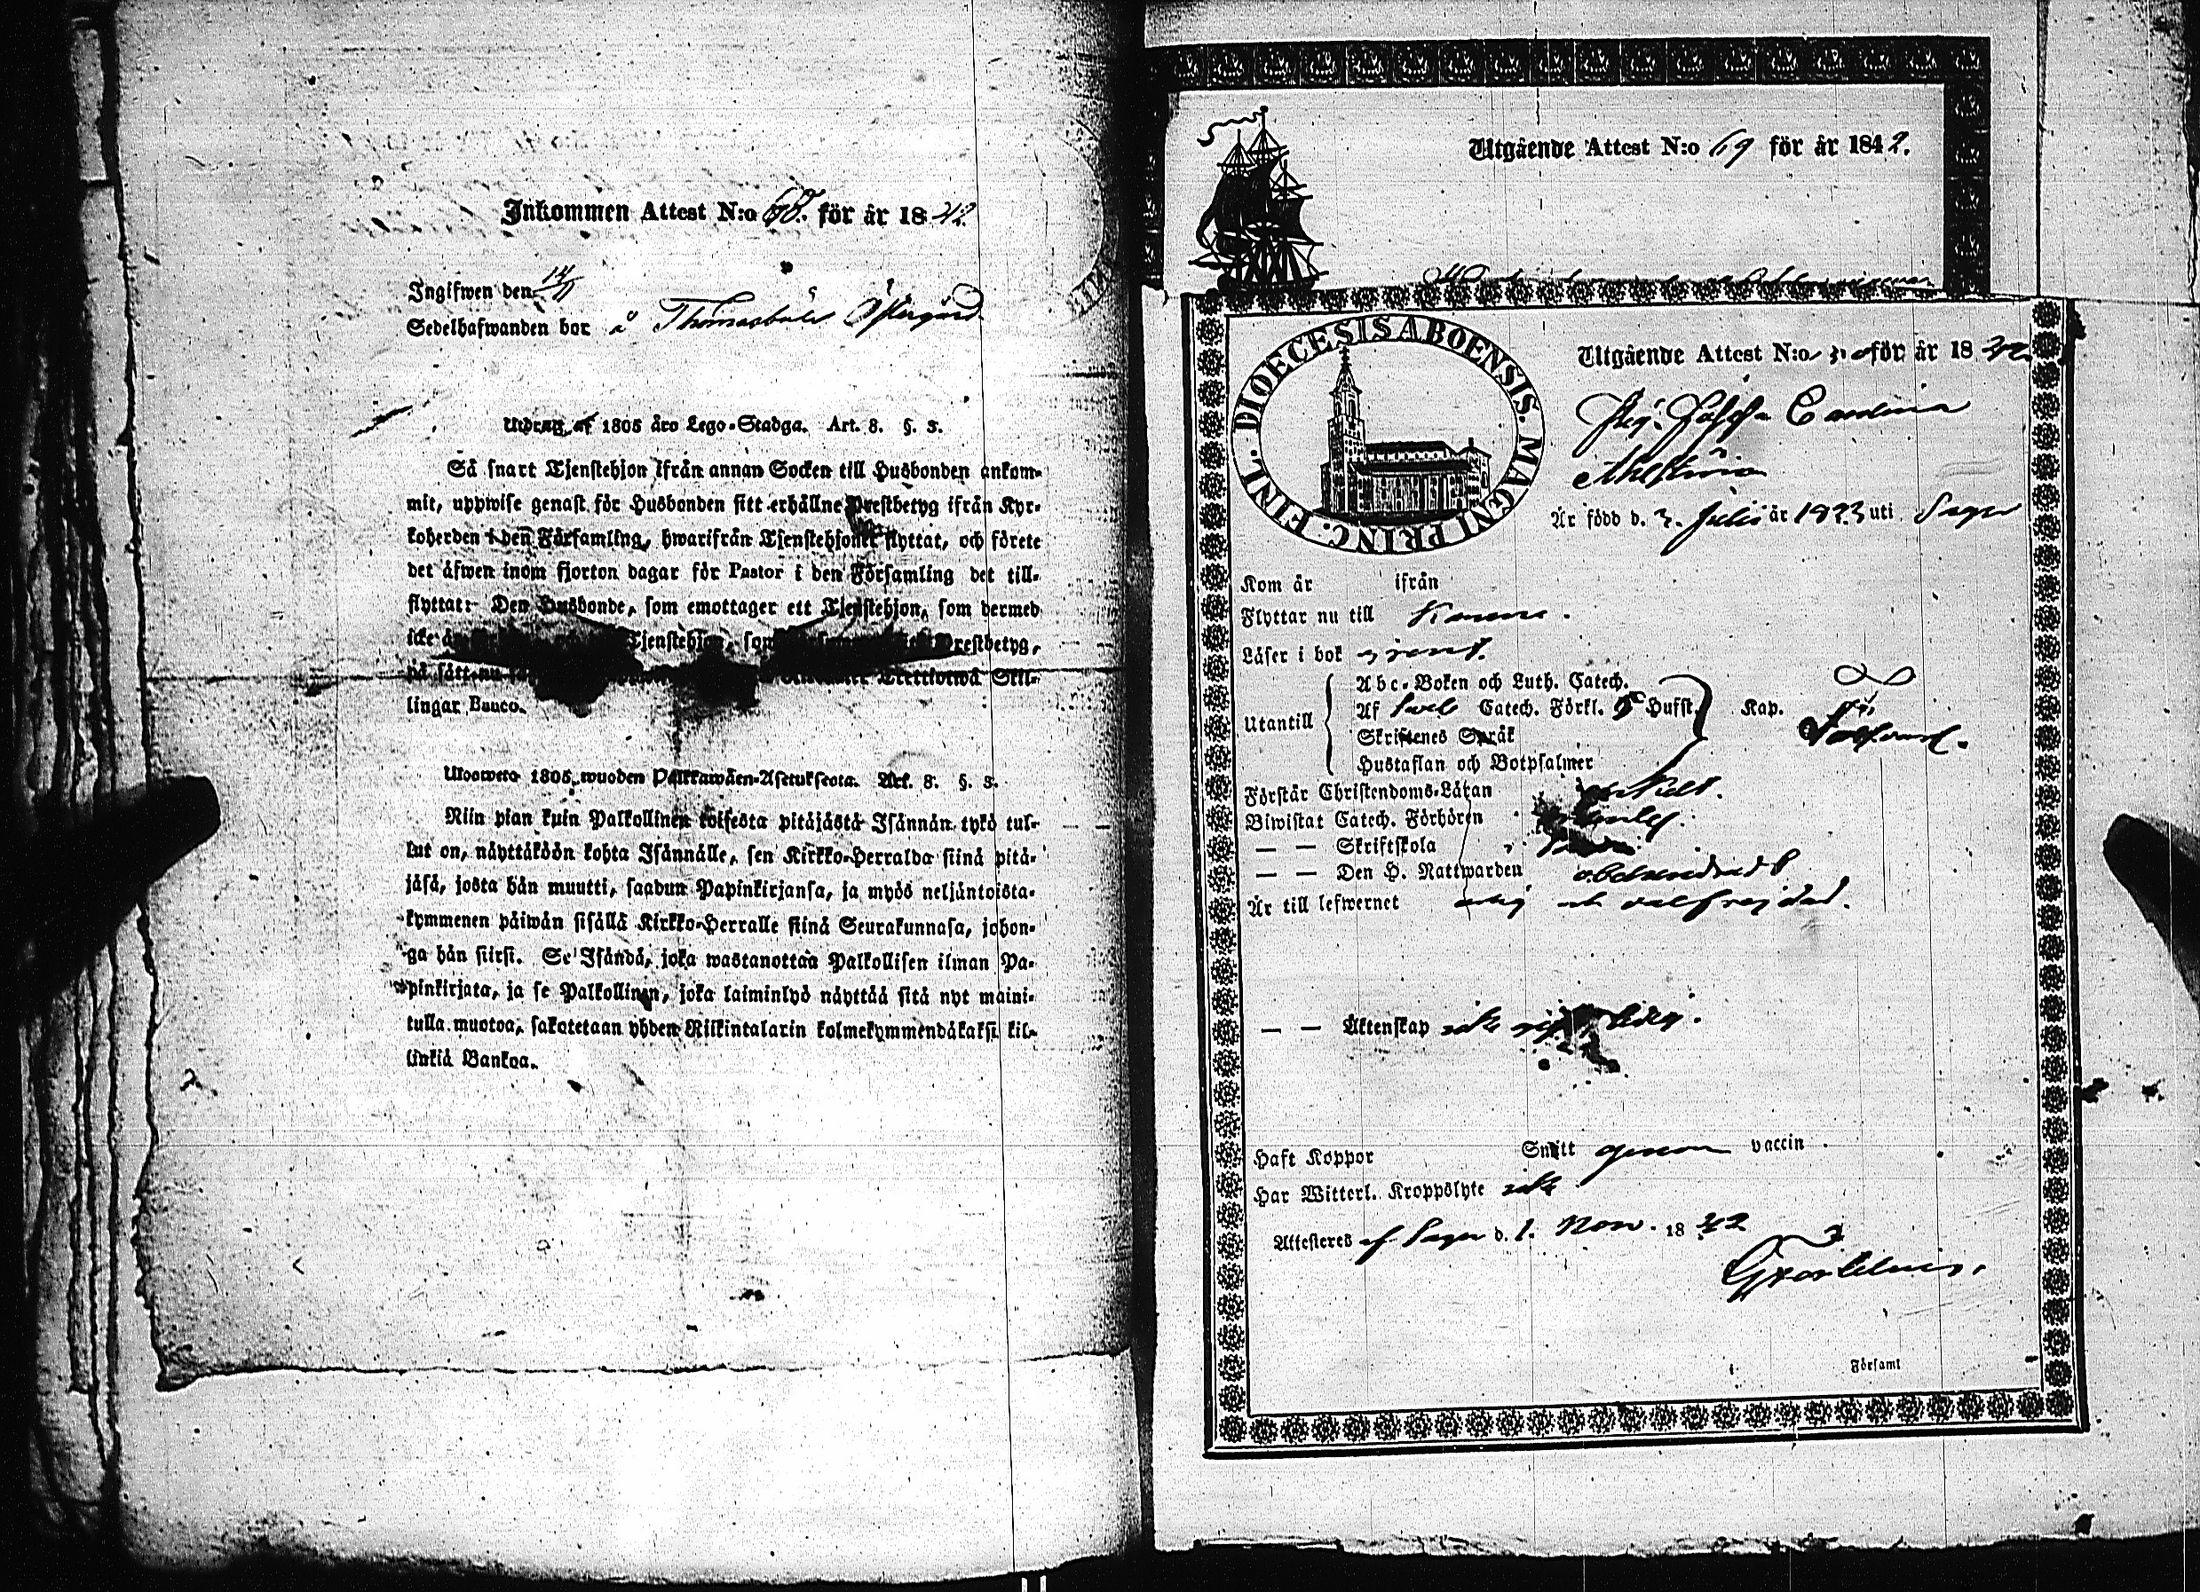 Inkommen Attest N:o 68. för år 1842
Ingifwen den 14/11
Sedelhafwanden bor å Thomasböle Östergård
Utdrag af 1805 års Lego-Stadga. Art. 8. §. 3.
Så snart Tjenstehjon ifrån annan Socken till Husbonden ankom-
mit, uppwise genast för Husbonden sitt erhållne Prestbetyg ifrån Kyr-
koherden i den Församling, hwarifrån Tjenstehjonet flyttat, och förete
det äfwen inom fjorton dagar för Pastor i den Församling det till-
flyttat: Den Husbonde, som emottager ett Tjenstehjon, som dermed
icke Tjenstehjon, som Prestbetyg,
på sätt nu Trettiotwå Skil-
lingar Banco.
Ulosweto 1805 wuoden Palkkawäen-Asetuksesta. Art. 8. §. 3.
Niin pian kuin Palkollinen toisesta pitäjästä Isännän tykö tul-
lut on, näyttäköön kohta Isännälle, sen Kirkko-Herralda siinä pitä-
jäsä, josta hän muutti, saadun Papinkirjansa, ja myös neljäntoista-
kymmenen päiwän sisällä Kirkko-Herralle siinä Seurakunnasa, johon-
ga hän siirsi. Se Isändä, joka wastanottaa Palkollisen ilman Pa-
pinkirjata, ja se Palkollinen, joka laiminlyö näyttää sitä nyt maini-
tulla muotoa, sakotetaan yhden Riikintalarin kolmekymmendäkaksi kil-
linkiä Bankoa.
Utgående Attest N:o 69 för år 1842.
DIOECESIS ABOENSIS. MAGNI PRINC. FINL.
Utgående Attest N:o för år 1842
Pig. Carolina
Är född d. 3. Julii år 1823 uti Sagu
Kom år ifrån
Flyttar nu till Kimene.
Läser i bok rent.
Utantill
Abc-Boken och Luth. Catech.
Af Catech. Förkl. 5 Hufst. Kap.
Skriftenes Språk
Hustaflan och Botpsalmer
Förstår Christendoms-Läran enkelt.
Biwistat Catech. Förhören
— — Skriftskola
— — Den H. Nattwarden obehindradt
Är till lefwernet ärlig och välfrejdad.
— — Äktenskap icke ledig.
Haft Koppor Smitt genom vaccin
Har Witterl. Kroppslyte icke
Attesteres af Sagu d. 1. Nov. 1842
Församl